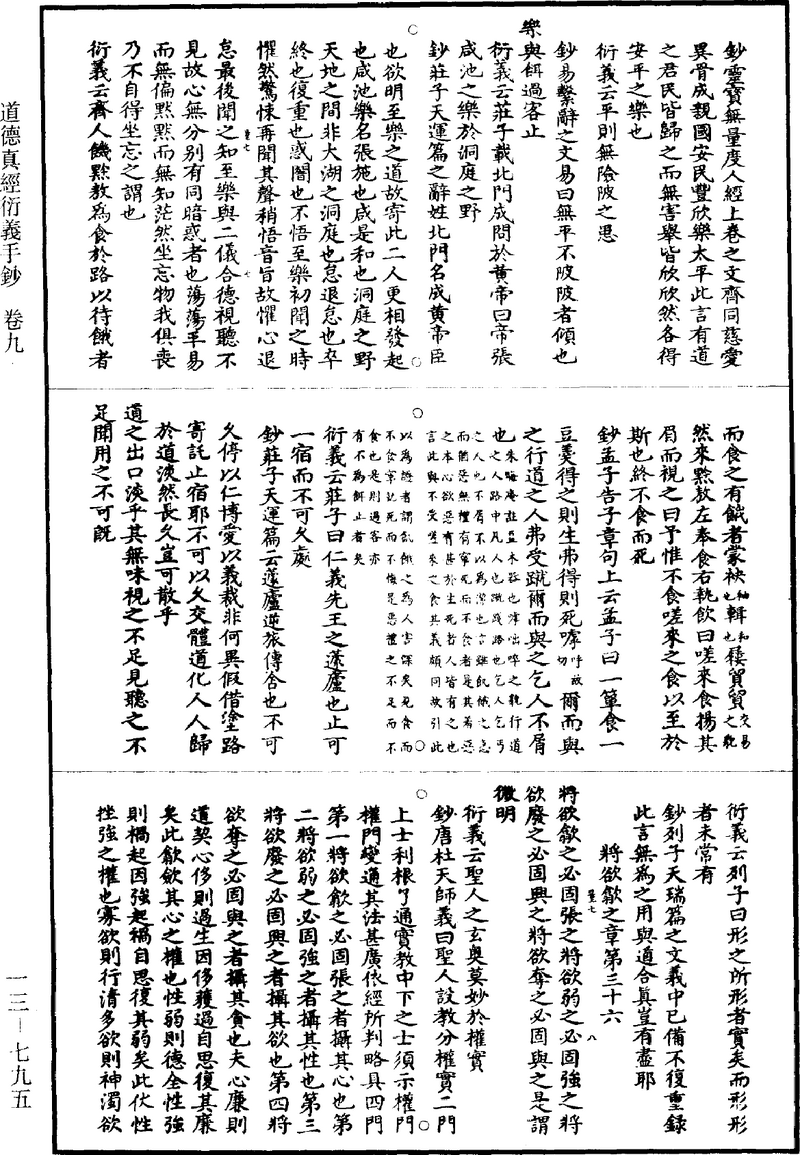 道德真經衍義手鈔　卷九
一三—七九五
鈔靈寶無量度人經上卷之文齊同慈愛
異骨成親國安民豐欣樂太平此言有道
之君民皆歸之而無害舉皆欣欣然各得
安平之樂也
衍義云平則無險陂之患
鈔易繫辭之文易曰無平不陂陂者傾也
樂與餌過客止
衍義云莊子載北門成問於黃帝曰帝張
咸池之樂於洞庭之野
鈔莊子天運篇之辭姓北門名成黃帝臣
也欲明至樂之道故寄此二人更相發起
也咸池樂名張施也咸是和也洞庭之野
天地之間非大湖之洞庭也怠退怠也卒
終也復重也惑闇也不悟至樂初聞之時
懼然驚悚再聞其聲稍悟音旨故懼心退
怠最後聞之知至樂與二儀合德視聽不
見故心無分別有同暗惑者也蕩蕩平易
而無偏默默而無知茫然坐忘物我俱喪
乃不自得坐忘之謂也
衍義云齊人饑黔敖為食於路以待餓者
而食之有餓者蒙袂袖也輯和也屨貿貿交易之貌
然來黔敖左奉食右執飲曰嗟來食揚其
目而視之曰予惟不食嗟來之食以至於
斯也終不食而死
鈔孟子告子章句上云孟子曰一簞食一
豆羹得之則生弗得則死嘑呼故切爾而與
之行道之人弗受蹴爾而與之乞人不屑
也朱晦菴註豆木器也嘑咄啐之貌行道
之人路中凡人也蹴踐踏也乞人丐乞
之人也不屑不以為潔也言雖飢餓之急
而猶惡無禮有寧死而不食者是其羞惡
之本心欲惡有甚於生死者人皆有之也
言此與不受嗟來之食其義頗同故引此
以為證者謂飢餓之為人害深矣見食而
不食寧就死而不悔是惡禮之不足而不
食也是則過客亦
有不為餌止者矣
衍義云莊子曰仁義先王之蘧廬也止可
一宿而不可久處
鈔莊子天運篇云蘧廬逆旅傳舍也不可
久停以仁博愛以義裁非何異假借塗路
寄託止宿耶不可以久交體道化人人歸
於道淡然長久豈可散乎
道之出口淡乎其無味視之不足見聽之不
足聞用之不可既
衍義云列子曰形之所形者實矣而形形
者未常有
鈔列子天瑞篇之文義中已備不復重錄
此言無為之用與道合真豈有盡耶
將欲歙之章第三十六
將欲歙之必固張之將欲弱之必固強之將
欲廢之必固興之將欲奪之必固與之是謂
微明
衍義云聖人之玄奧莫妙於權實
鈔唐杜天師義曰聖人設教分權實二門
上士利根了通實教中下之士須示權門
權門變通其法甚廣依經所判略具四門
第一將欲歙之必固張之者攝其心也第
二將欲弱之必固強之者攝其性也第三
將欲廢之必固興之者攝其欲也第四將
欲奪之必固與之者攝其貪也夫心廉則
道契心侈則過生因侈獲過自思復其廉
矣此歙斂其心之權也性弱則德全性強
則禍起因強起禍自思復其弱矣此伏性
挫強之權也寡欲則行清多欲則神濁欲